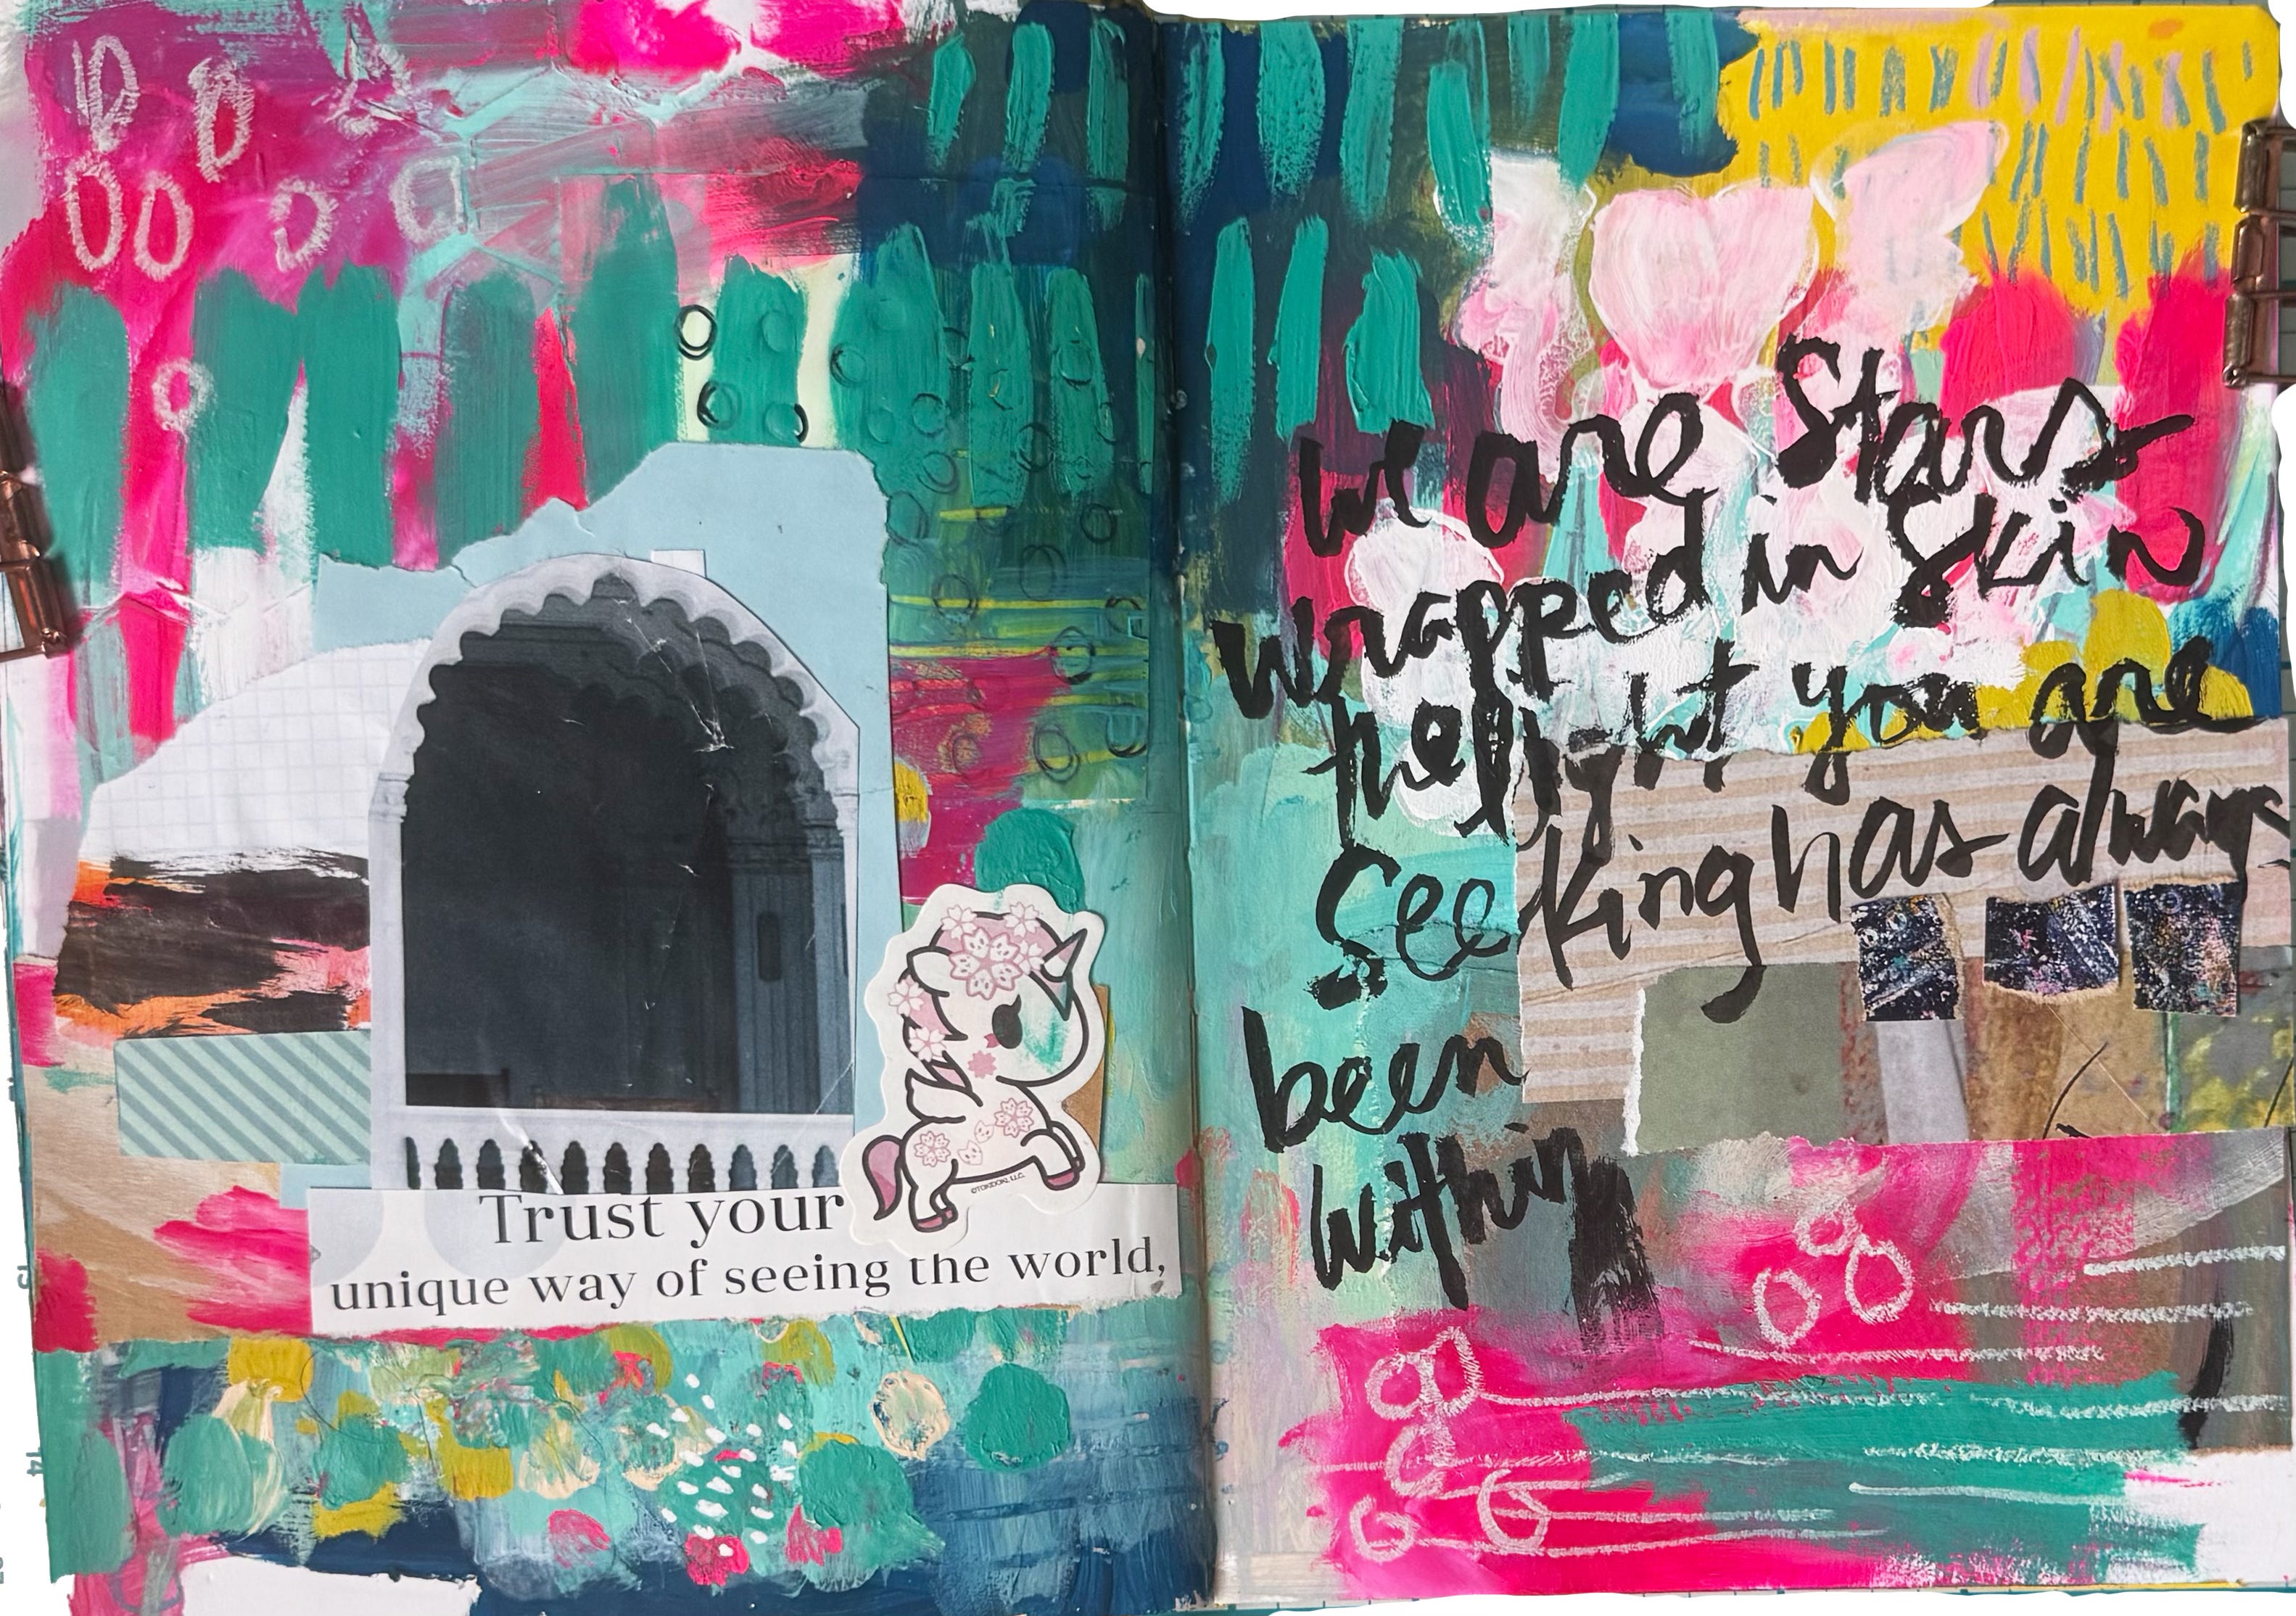 Trust your
unique way of seeing the world,
©TOKIDOKI, LLC.
we are Stars
wrapped in Skin
the light you are
Seeking has always
been
within
13
14